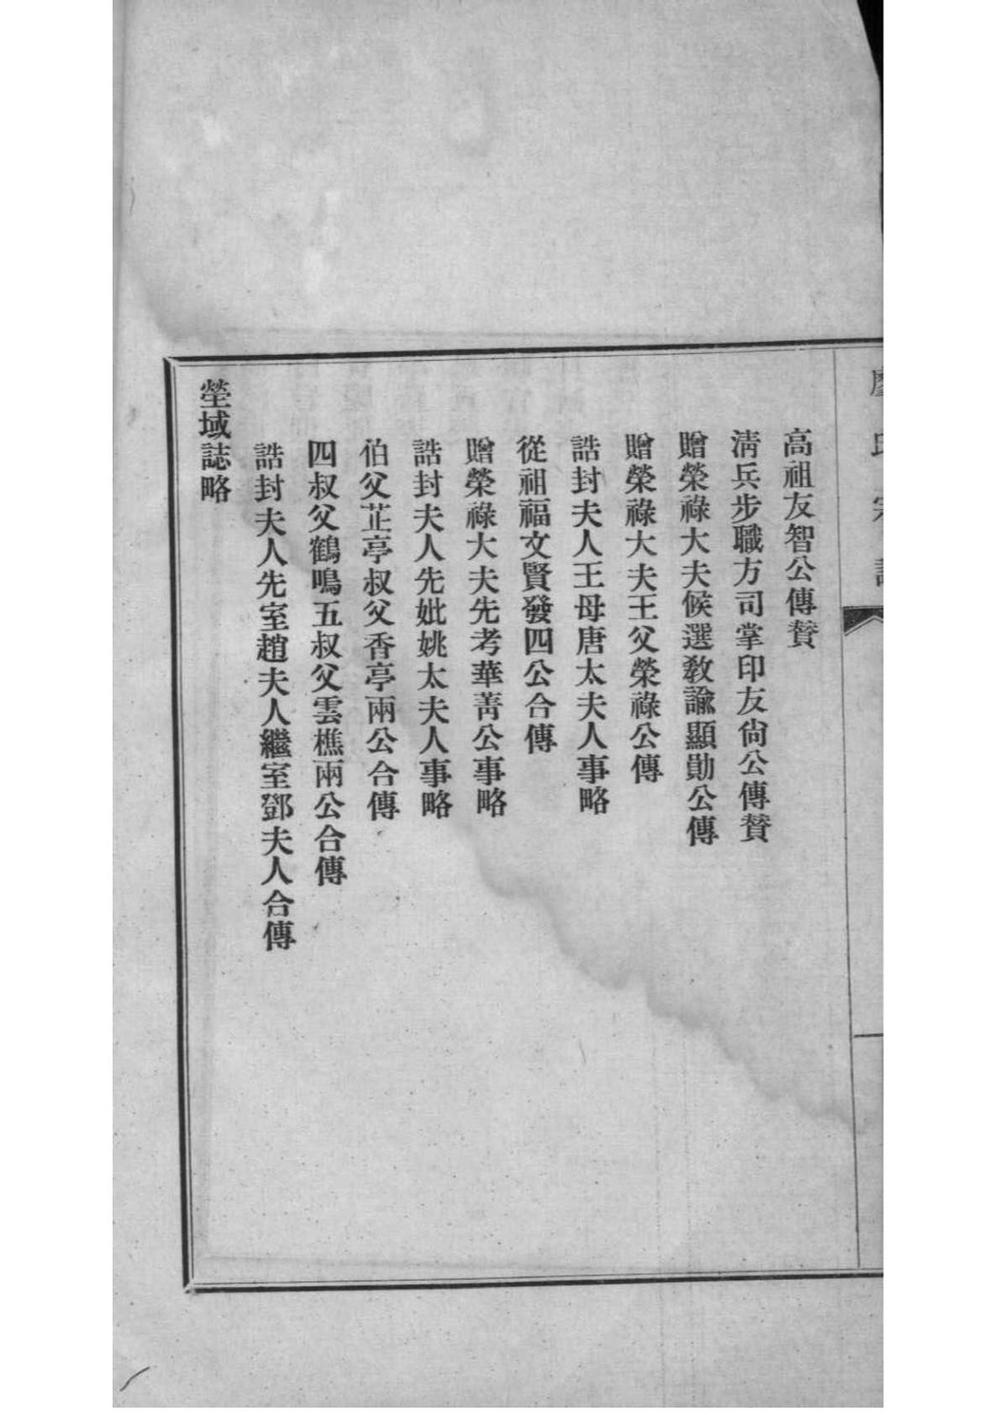 高祖友智公傳贊
清兵步職方司掌印友尙公傳贊
贈榮祿大夫候選敎諭顯勛公傳
贈榮祿大夫王父榮祿公傳
誥封夫人王母唐太夫人事略
從祖福文賢發四公合傳
贈榮祿大夫先考華菁公事略
誥封夫人先妣姚太夫人事略
伯父芷亭叔父香亭兩公合傳
四叔父鶴鳴五叔父雲樵兩公合傳
誥封夫人先室趙夫人繼室鄧夫人合傳
塋域誌略